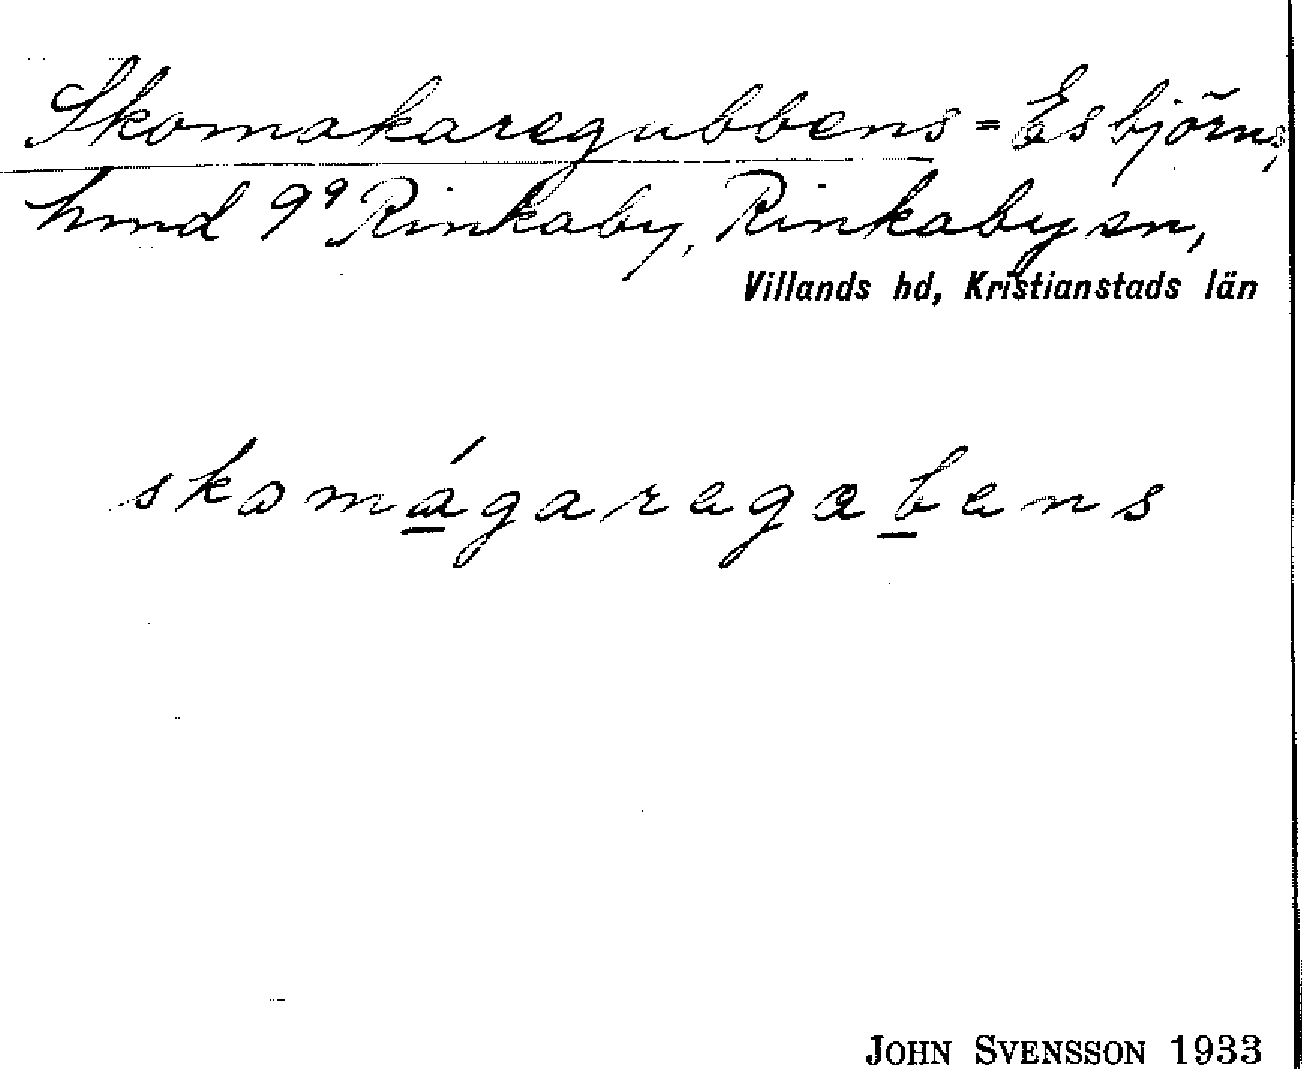 Skomakaregubbens = Esbjörns,
hmd 9⁹ Rinkaby, Rinkaby sn,
Villands hd, Kristianstads län
skomágaregæbens
JOHN SVENSSON 1933